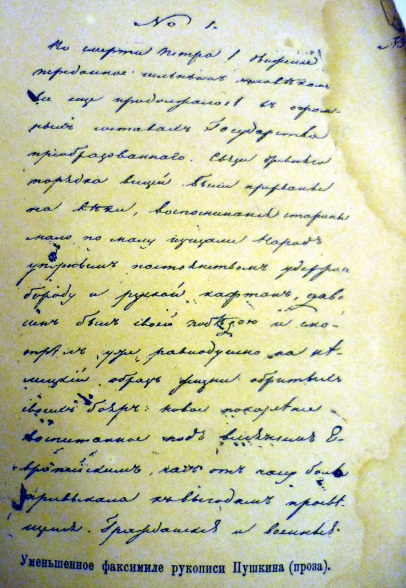 № 1.
По смерти Петра I движенiе
переданное сильнымъ человѣкомъ
все еще продолжалось въ огром-
ныхъ составахъ Государства
преобразованнаго. Связи древняго
порядка вещей были прерваны
на вѣки, воспоминанiя старины
мало по малу изчезали Народъ
упорнымъ постоянствомъ удержавъ
бороду и руской кафтанъ, дово
ленъ былъ своей побѣдою и смо-
трѣлъ уже равнодушно на нѣ-
мецкiй образъ жизни обритыхъ
своихъ бояръ: новое поколѣнiе
воспитанное подъ влiянiемъ Е-
вропейскимъ, часъ отъ часу болѣе
привыкало къ выгодамъ просвѣ
щенiя. Гражданскiе и военные
Уменьшенное факсимиле рукописи Пушкина (проза).